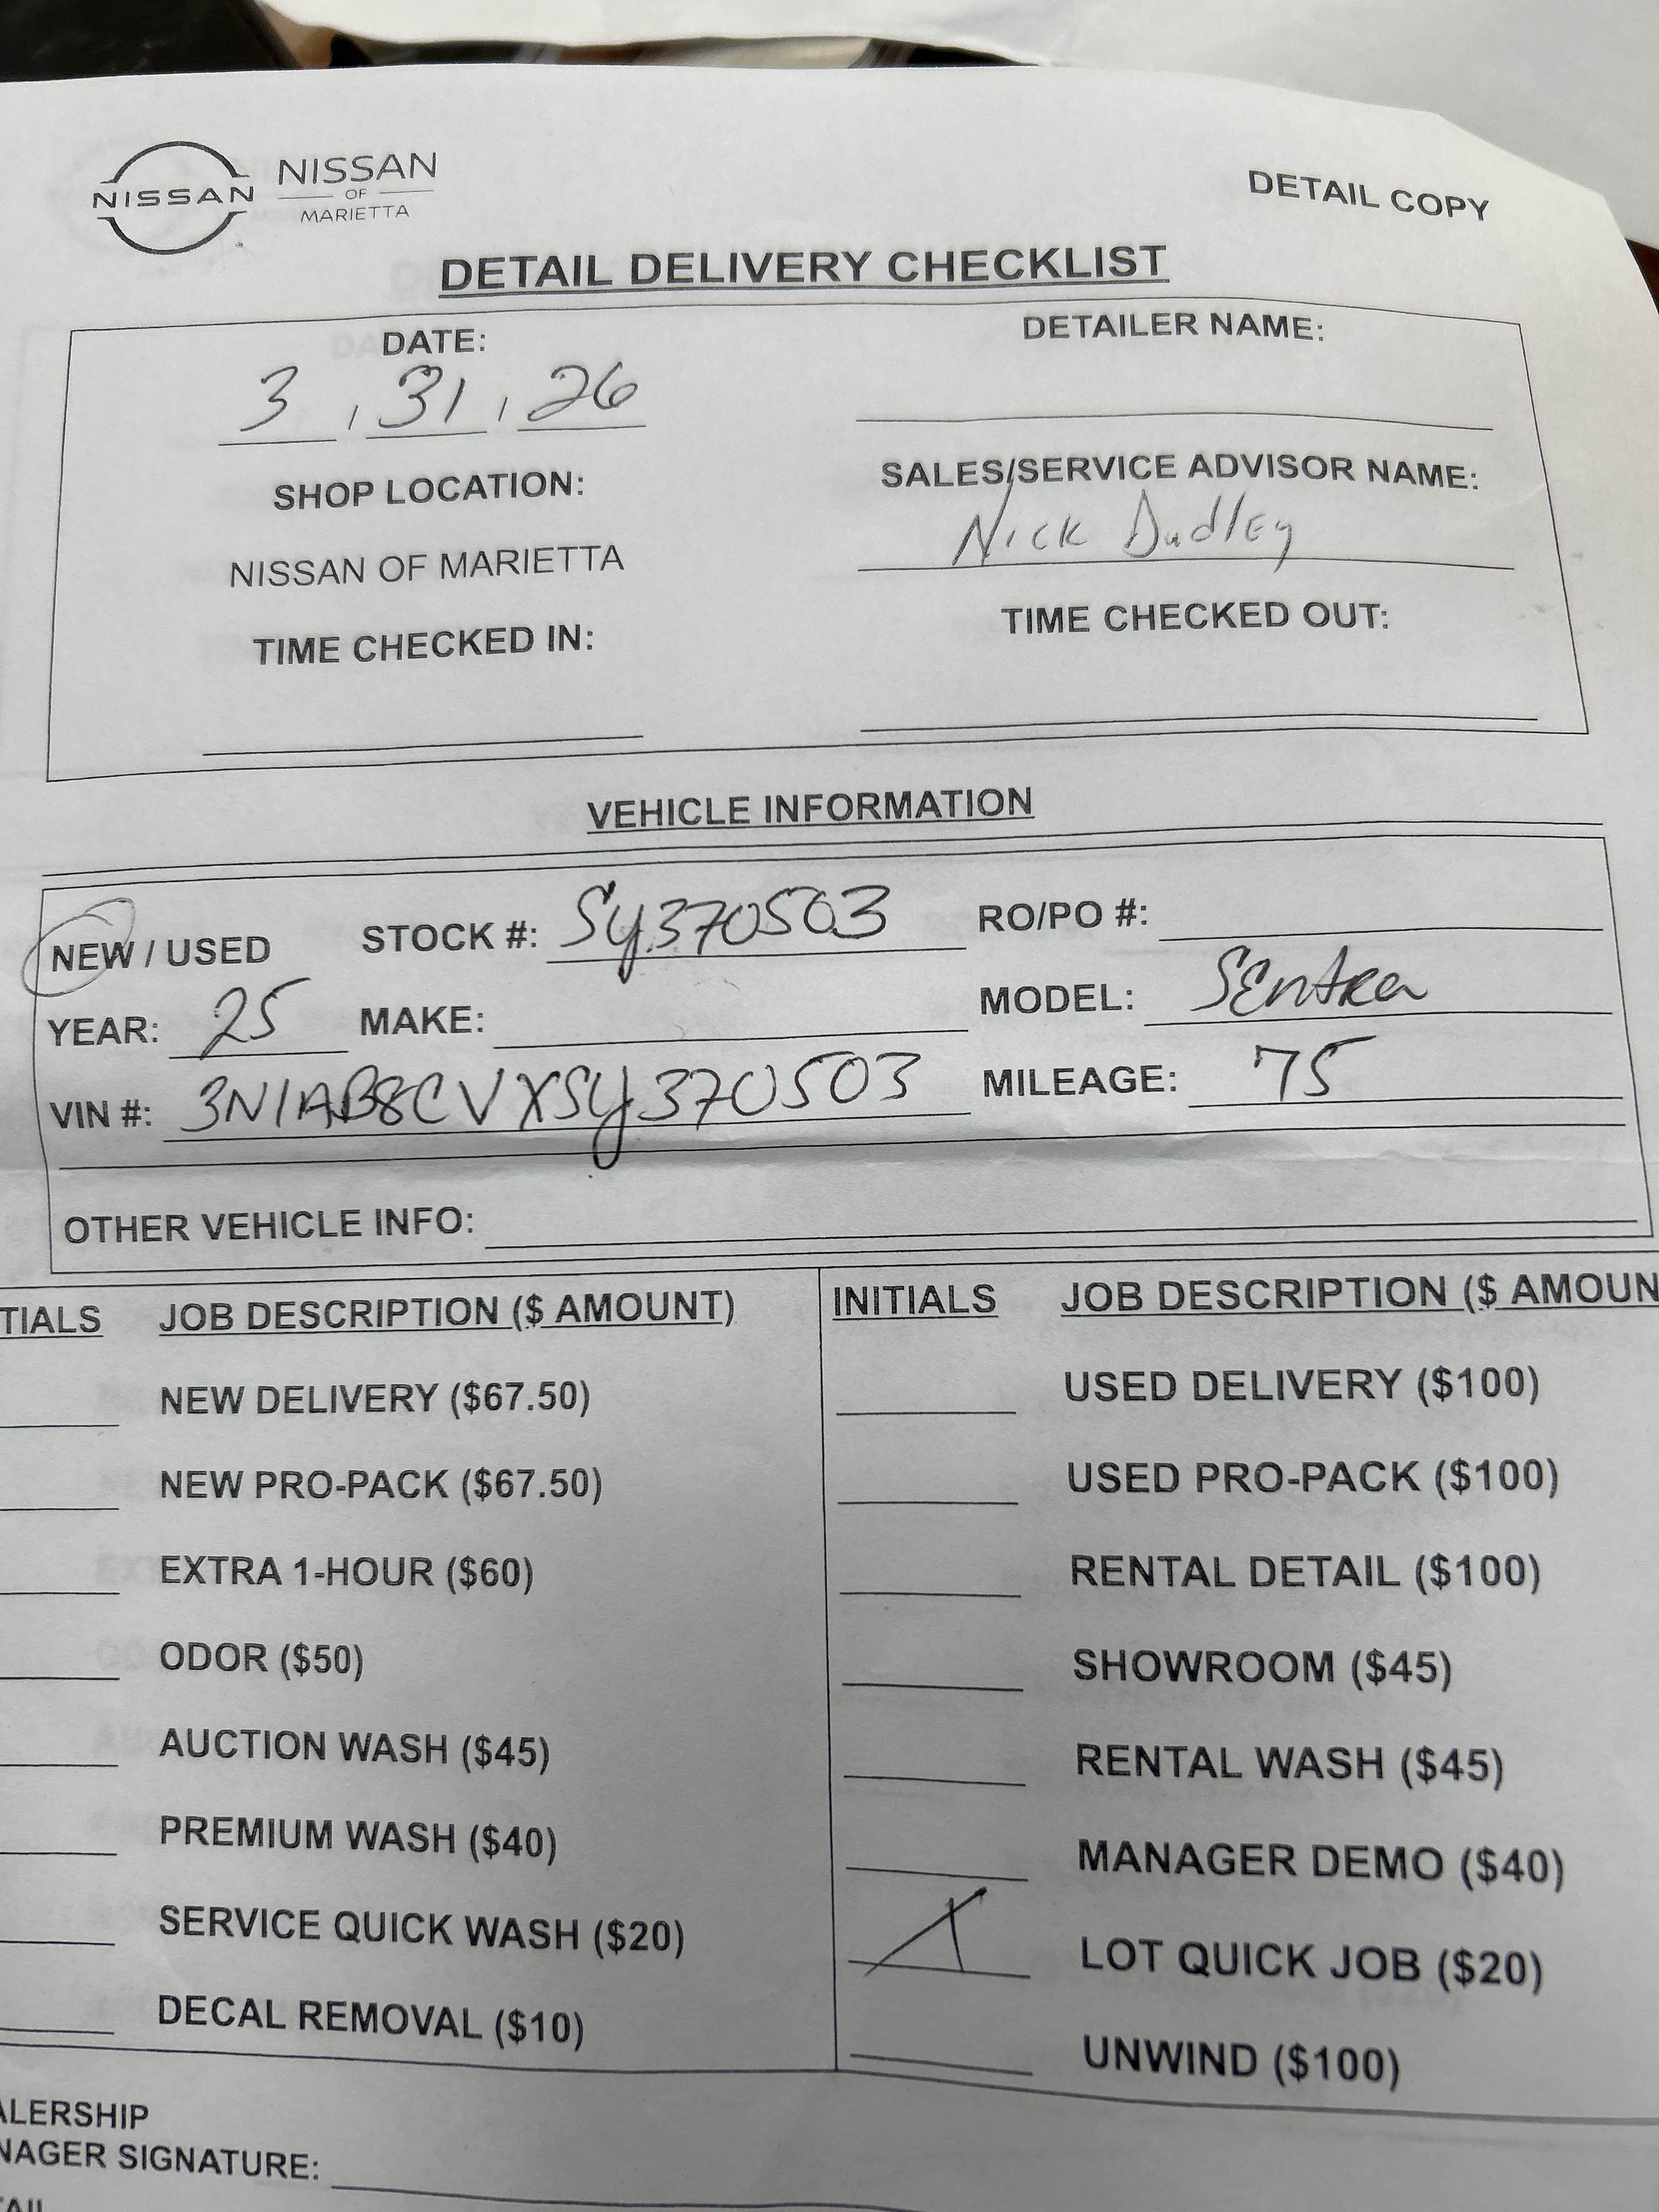 NISSAN NISSAN
OF
MARIETTA
DETAIL COPY
DETAIL DELIVERY CHECKLIST
DATE:
3 / 31 / 26
DETAILER NAME:
SHOP LOCATION:
NISSAN OF MARIETTA
SALES/SERVICE ADVISOR NAME:
Nick Dudley
TIME CHECKED IN:
TIME CHECKED OUT:
VEHICLE INFORMATION
NEW / USED STOCK #: SY370503 RO/PO #:
YEAR: 25 MAKE: MODEL: SEntra
VIN #: 3N1AB8CVXSY370503 MILEAGE: 75
OTHER VEHICLE INFO:
TIALS JOB DESCRIPTION ($ AMOUNT) INITIALS JOB DESCRIPTION ($ AMOUN
NEW DELIVERY ($67.50) USED DELIVERY ($100)
NEW PRO-PACK ($67.50) USED PRO-PACK ($100)
EXTRA 1-HOUR ($60) RENTAL DETAIL ($100)
ODOR ($50) SHOWROOM ($45)
AUCTION WASH ($45) RENTAL WASH ($45)
PREMIUM WASH ($40) MANAGER DEMO ($40)
SERVICE QUICK WASH ($20) LOT QUICK JOB ($20)
DECAL REMOVAL ($10) UNWIND ($100)
ALERSHIP
NAGER SIGNATURE: